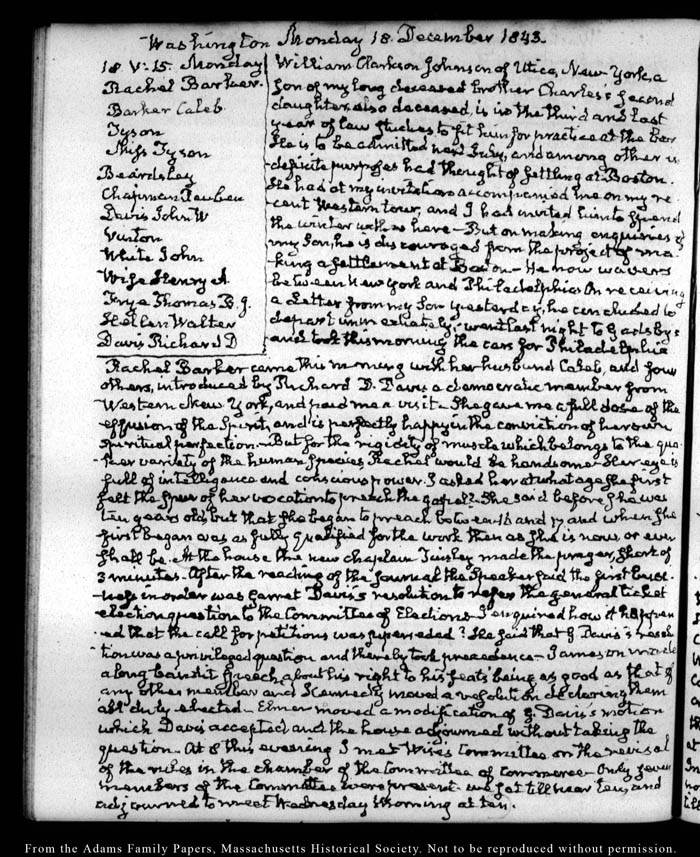 Washington Monday 18. December 1843.
18. V:15. Monday
Rachel Barker.
Barker Caleb
Tyson
Miss Tyson
Beardsley
Chapman Reuben
Davis John W
Vinton
White John
Wise Henry A
Frye Thomas B. J.
Hellen Walter
Davis Richard D
William Clarkson Johnson of Utica, New-York, a
son of my long deceased brother Charles's second
daughter, also deceased, is in the third and last
year of law studies to fit him for practice at the bar
He is to be admitted next July, and among other in
definite purposes had thought of settling at Boston.
He had at my invitation accompanied me on my re
cent Western tour, and I had invited him to spend
the winter with us here—But on making enquiries of
my Son, he is discouraged from the project of ma
king a settlement at Boston—He now wavers
between New York and Philadelphia. On receiving
a Letter from my Son yesterday, he concluded to
depart immediately; went last night to Gadsby's
and took this morning the cars for Philadelphia
Rachel Barker came this morning with her husband Caleb, and four
others, introduced by Richard D. Davis a democratic member from
Western New York, and paid me a visit—She gave me a full dose of the
effusion of the Spirit, and is perfectly happy in the conviction of her own
spiritual perfection—But for the rigidity of muscle which belongs to the qua
-ker variety of the human species Rachel would be handsome—Her eye is
full of intelligence and conscious power. I asked her at what age she first
felt the spur of her vocation to preach the gospel? She said before she was
ten years old, but that she began to preach between 16 and 17 and when she
first began was as fully qualified for the work then as she is now or ever
shall be. At the house the new chaplain Tinsley made the prayer, short of
3 minutes—After the reading of the journal the Speaker said the first busi
-ness in order was Garret Davis's resolution to refer the general ticket
election question to the Committee of Elections—I enquired how it happen
-ed that the call for petitions was superseded? He said that G Davis's resolu
tion was a privileged question and thereby took precedence—Jameson made
a long bandit speech about his right to his seat being as good as that of
any other member and Kennedy moved a resolution declaring them
all duly elected—Elmer moved a modification of G. Davis's motion
which Davis accepted and the house adjourned without taking the
question—At 8 this evening I met Wise's Committee on the revisal
of the rules in the chamber of the Committee of commerce—Only seven
members of the Committee were present—we sat till near ten, and
adjourned to meet Wednesday Morning at ten.
From the Adams Family Papers, Massachusetts Historical Society. Not to be reproduced without permission.